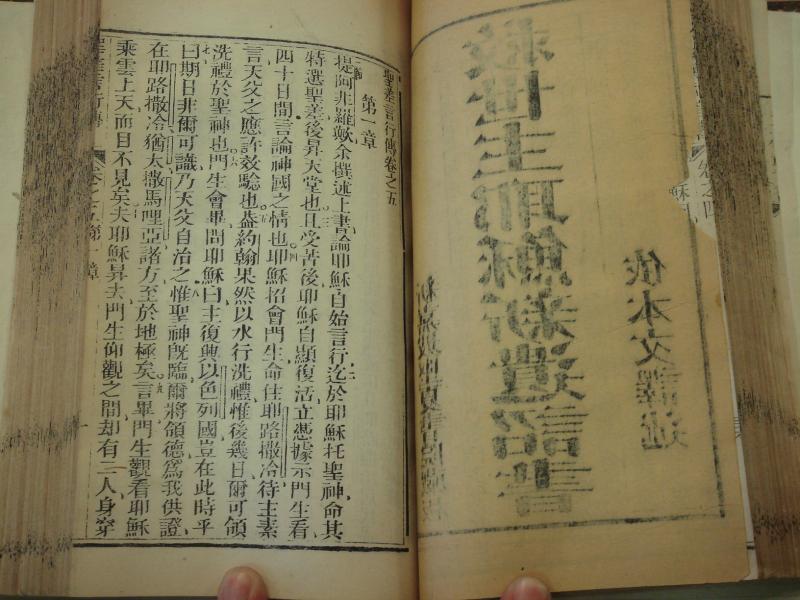 依本文譯述
救世主耶穌新遺詔書
聖差言行傳卷之五
第一章
提阿非羅歟余撰述上書論耶穌自始言行迄於耶穌托聖神命其
特選聖差後昇天堂也且受苦後耶穌自顯復活立憑據示門生看
四十日間言論神國之情也耶穌招會門生命住耶路撒冷待主素
言天父之應許效驗也葢約翰果然以水行洗禮惟後幾日爾可領
洗禮於聖神也門生會畢問耶穌曰主復興以色列國豈在此時乎
曰期日非爾可識乃天父自治之惟聖神旣臨爾將領德為我供證
在耶路撒冷猶太撒馬哩亞諸方至於地極矣言畢門生觀看耶穌
乘雲上天而目不見矣夫耶穌昇去門生仰觀之間却有二人身穿